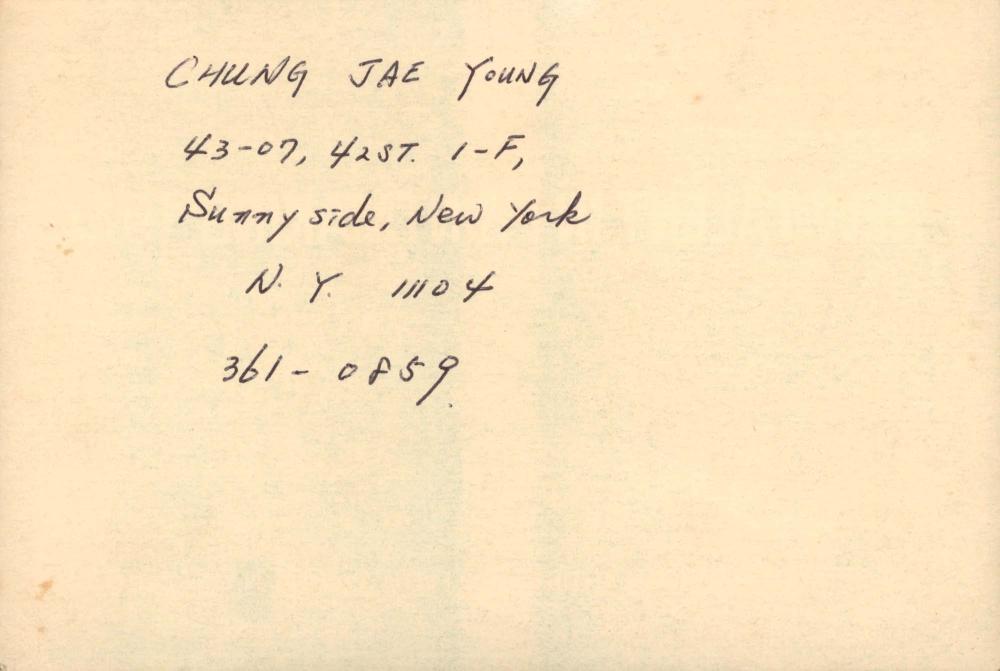 CHUNG JAE YOUNG
43-07, 42ST. 1-F,
Sunnyside, New York
N. Y. 11104
361-0859